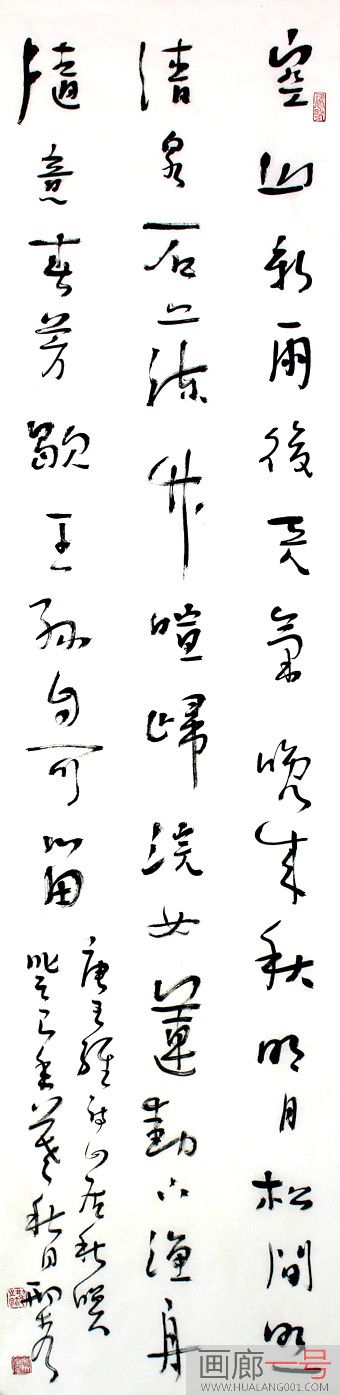 空山新雨後天氣晚來秋明月松間照
清泉石上流竹喧歸浣女蓮動下漁舟
隨意春芳歇王孫自可留
唐王維詩山居秋暝
秋日
画廊一号
WWW.HUALANG001.COM